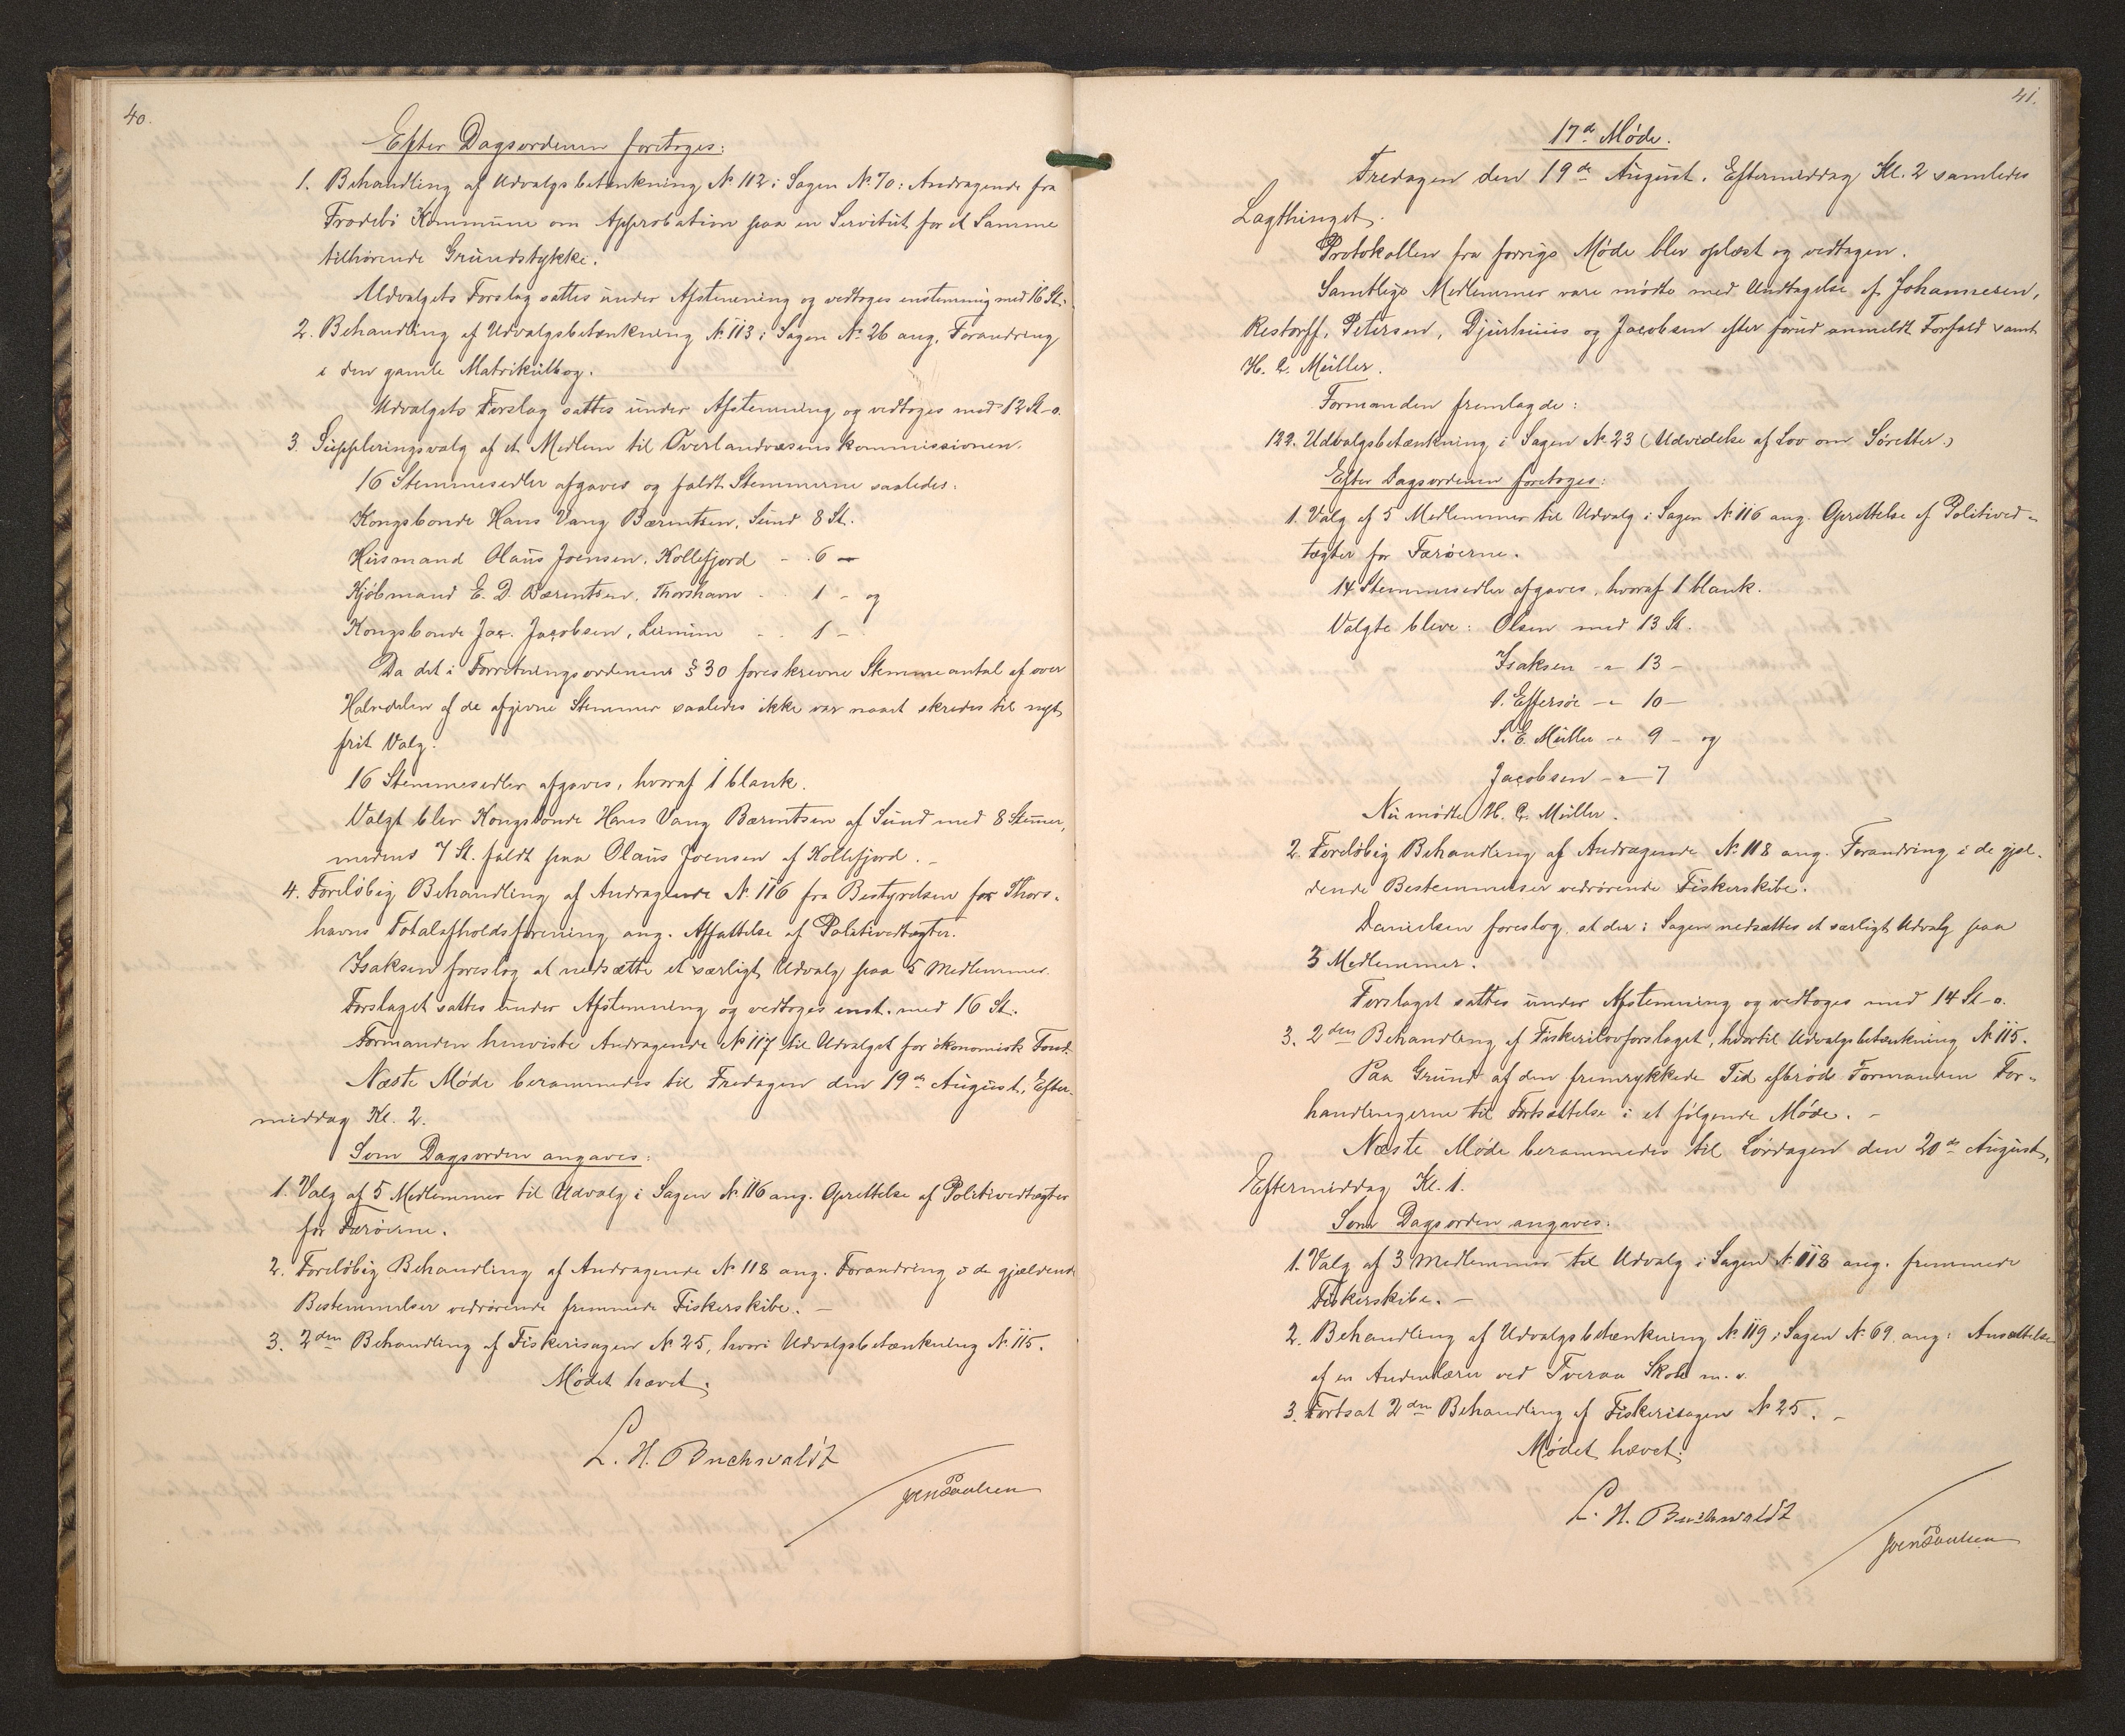 40.
Efter Dagsordenen foretoges:
1. Behandling af Udvalgsbetænkning № 112 i Sagen № 70: Andragende fra
Frodebø Kommune om Approbation paa en Servitut for et Samme
tilhørende Grundstykke.
Udvalgets Forslag sattes under Afstemning og vedtoges enstemmig med 16 St.
2. Behandling af Udvalgsbetænkning № 113 i Sagen № 26 ang. Forandring
i den gamle Matrikulbog.
Udvalgets Forslag sattes under Afstemning og vedtoges med 12 St-0.
3. Suppleringsvalg af et Medlem til Overlandvæsenskommissionen.
16 Stemmesedler afgaves og faldt Stemmerne saaledes:
Kongsbonde Hans Vang Bærentsen, Sund 8 St.
Husmand Olaus Joensen, Kollefjord - . 6 —
Kjøbmand E. D. Bærentsen, Thorshavn - . 1 - og
Kongsbonde Jac. Jacobsen, - . 1 -
Da det i Forretningsordenens § 30 foreskrevne Stemmeantal af over
Halvdelen af de afgivne Stemmer saaledes ikke var naaet skredes til nyt
frit Valg.
16 Stemmesedler afgaves, hvoraf 1 blank.
Valgt blev Kongsbonde Hans Vang Bærentsen af Sund med 8 Stemer,
medens 7 St. faldt paa Olaus Joensen af Kollefjord. -
4. Foreløbig Behandling af Andragende № 116 fra Bestyrelsen for Thors-
havns Totalafholdsforening ang. Affattelse af Politivedtægter.
Isaksen foreslog at nedsætte et særligt Udvalg paa 5 Medlemmer.
Forslaget sattes under Afstemning og vedtoges enst. med 16 St.
Formanden henviste Andragende № 117 til Udvalget for økonomisk Fond.
Næste Møde berammedes til Fredagen den 19de August, Efter-
middag Kl. 2.
Som Dagsorden angaves:
1. Valg af 5 Medlemmer til Udvalg i Sagen № 116 ang. Oprettelse af Politivedtægter
for Færøerne.
2. Foreløbig Behandling af Andragende № 118 ang. Forandring i de gjældende
Bestemmelser vedrørende fremmede Fiskerskibe. —
3. 2den Behandling af Fiskerisagen № 25, hvori Udvalgsbetænkning № 115.
Mødet hævet.
L. H. Buchwaldt
Joen Poulsen
41.
17de Møde.
Fredagen den 19de August, Eftermiddag Kl. 2 samledes
Lagthinget.
Protokollen fra forrige Møde blev oplæst og vedtagen.
Samtlige Medlemmer vare mødte med Undtagelse af Johannesen,
Restorff, Petersen, Djurhuus og Jacobsen efter forud anmeldt Forfald samt
H. C. Müller.
Formanden fremlagde:
122. Udvalgsbetænkning i Sagen № 23 (Udvidelse af Lov om Søretter)
Efter Dagsordenen foretoges:
1. Valg af 5 Medlemmer til Udvalg i Sagen № 116 ang. Oprettelse af Politived-
tægter for Færøerne.
14 Stemmesedler afgaves, hvoraf 1 blank.
Valgte bleve: Olsen med 13 St.
Isaksen -"- 13 -
O. Effersøe -"- 10 -
S. E. Müller -"- 9 - og
Jacobsen -"- 7
Nu mødte H. C. Müller.
2. Foreløbig Behandling af Andragende № 118 ang. Forandring i de gjæl-
dende Bestemmelser vedrørende Fiskerskibe.
Danielsen foreslog, at der i Sagen nedsættes et særligt Udvalg paa
3 Medlemmer.
Forslaget sattes under Afstemning og vedtoges med 14 St-0.
3. 2den Behandling af Fiskerilovforslaget, hvortil Udvalgsbetænkning № 115.
Paa Grund af den fremrykkede Tid afbrød Formanden For-
handlingerne til Fortsættelse i et følgende Møde. -
Næste Møde berammedes til Lørdagen den 20de August,
Eftermiddag Kl. 1.
Som Dagsorden angaves:
1. Valg af 3 Medlemmer til Udvalg i Sagen № 118 ang. fremmede
Fiskerskibe. —
2. Behandling af Udvalgsbetænkning № 119 i Sagen № 69 ang: Ansættelse
af en Andenlærer ved Tveraa Skole m. v.
3. Fortsat 2den Behandling af Fiskerisagen № 25. -
Mødet hævet.
L. H. Buchwaldt
Joen Poulsen